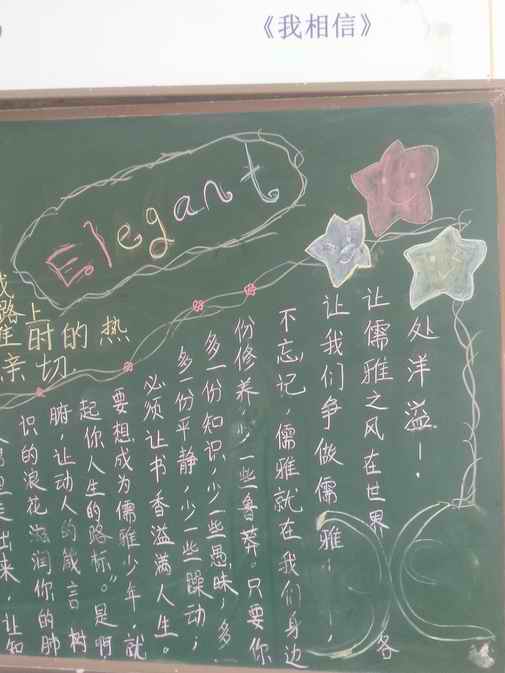 《我相信》
Elegant
路上
时的热
亲切.
走出来，让知
识的浪花滋润你的肺
腑，让动人的箴言树
起你人生的路标。”是啊
要想成为儒雅少年，就
必须让书香溢满人生。
多一份平静，少一些躁动；
多一份知识，少一些愚昧，多一
份修养，少一些鲁莽。只要你
不忘记，儒雅就在我们身边
让我们争做儒雅
让儒雅之风在世界各
处洋溢！